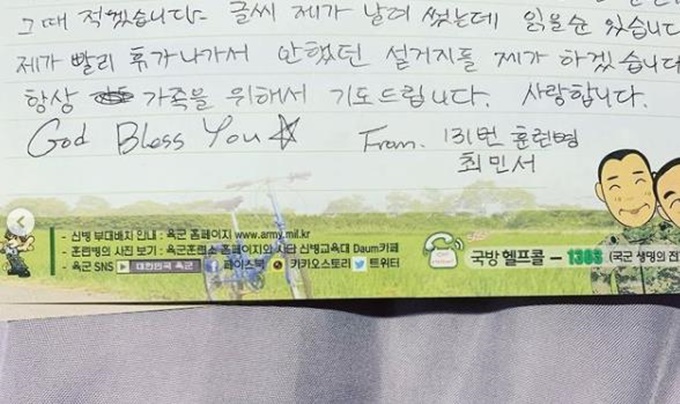 그때 적겠습니다- 글씨 제가 날려 썼는데 읽을순 있습니다
제가 빨리 휴가나가서 안했던 설거지들 제가 하겠습니다
항상 가족을 위해서 기도드립니다. 사랑합니다.
God Bless You☆ From. 131번 훈련병
최민서
- 신병 부대배치 안내 : 육군 홈페이지 www.army.mil.kr
- 훈련병의 사진 보기 : 육군훈련소 홈페이지와 사단 신병교육대 Daum카페
- 육군 SNS 대한민국 육군 f 페이스북 카카오스토리 트위터
국방헬프콜 - 1303 (국군 생명의 전